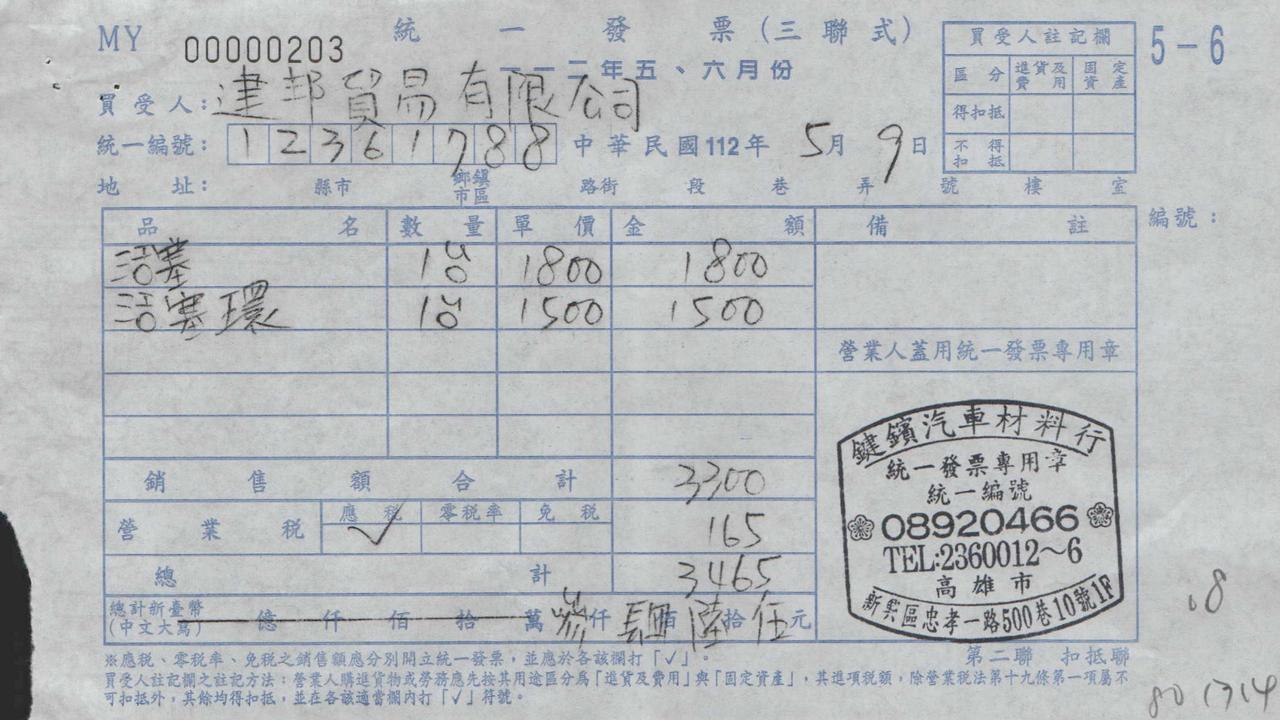 MY 00000203 統一發票(三聯式)
一一二年五、六月份
5-6
買受人註記欄
區分 進貨及費用 固定資產
得扣抵
不得扣抵
買受人: 建邦貿易有限公司
統一編號: 12361788 中華民國112年5月9日
地址: 縣市 鄉鎮市區 路街 段 巷 弄 號 樓 室
品名 數量 單價 金額 備註 編號:
活塞 1 1800 1800
活塞環 1 1500 1500
營業人蓋用統一發票專用章
銷售額合計 3300
營業稅 應稅 零稅率 免稅 165
✓
總計 3465
總計新臺幣(中文大寫) 億仟佰拾萬參仟肆佰陸拾伍元
鍵鑌汽車材料行
統一發票專用章
統一編號
08920466
TEL:2360012~6
高雄市
新興區忠孝一路500巷10號1F
第二聯 扣抵聯
※應稅、零稅率、免稅之銷售額應分別開立統一發票,並應於各該欄打「✓」。
買受人註記欄之註記方法:營業人購進貨物或勞務應先按其用途區分為「進貨及費用」與「固定資產」,其進項稅額,除營業稅法第十九條第一項屬不
可扣抵外,其餘均得扣抵,並在各該適當欄內打「✓」符號。